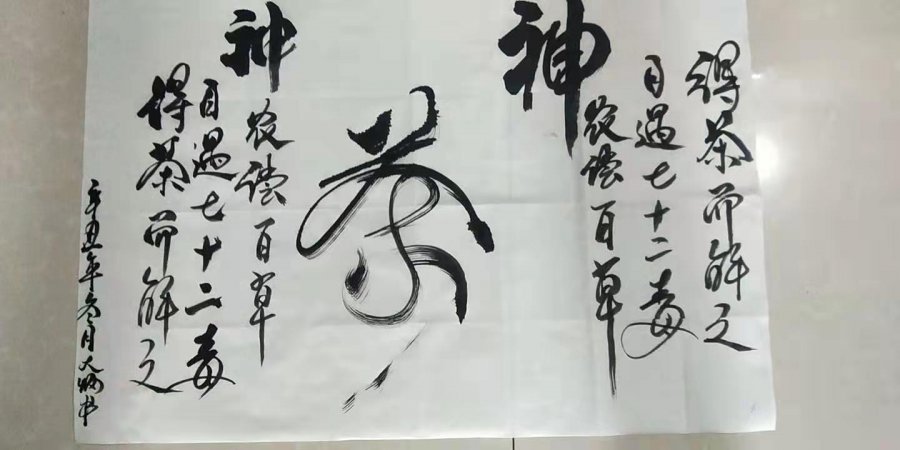 神农尝百草
日遇七十二毒
得茶而解之
茶
神农尝百草
日遇七十二毒
得茶而解之
辛丑年 月大 书